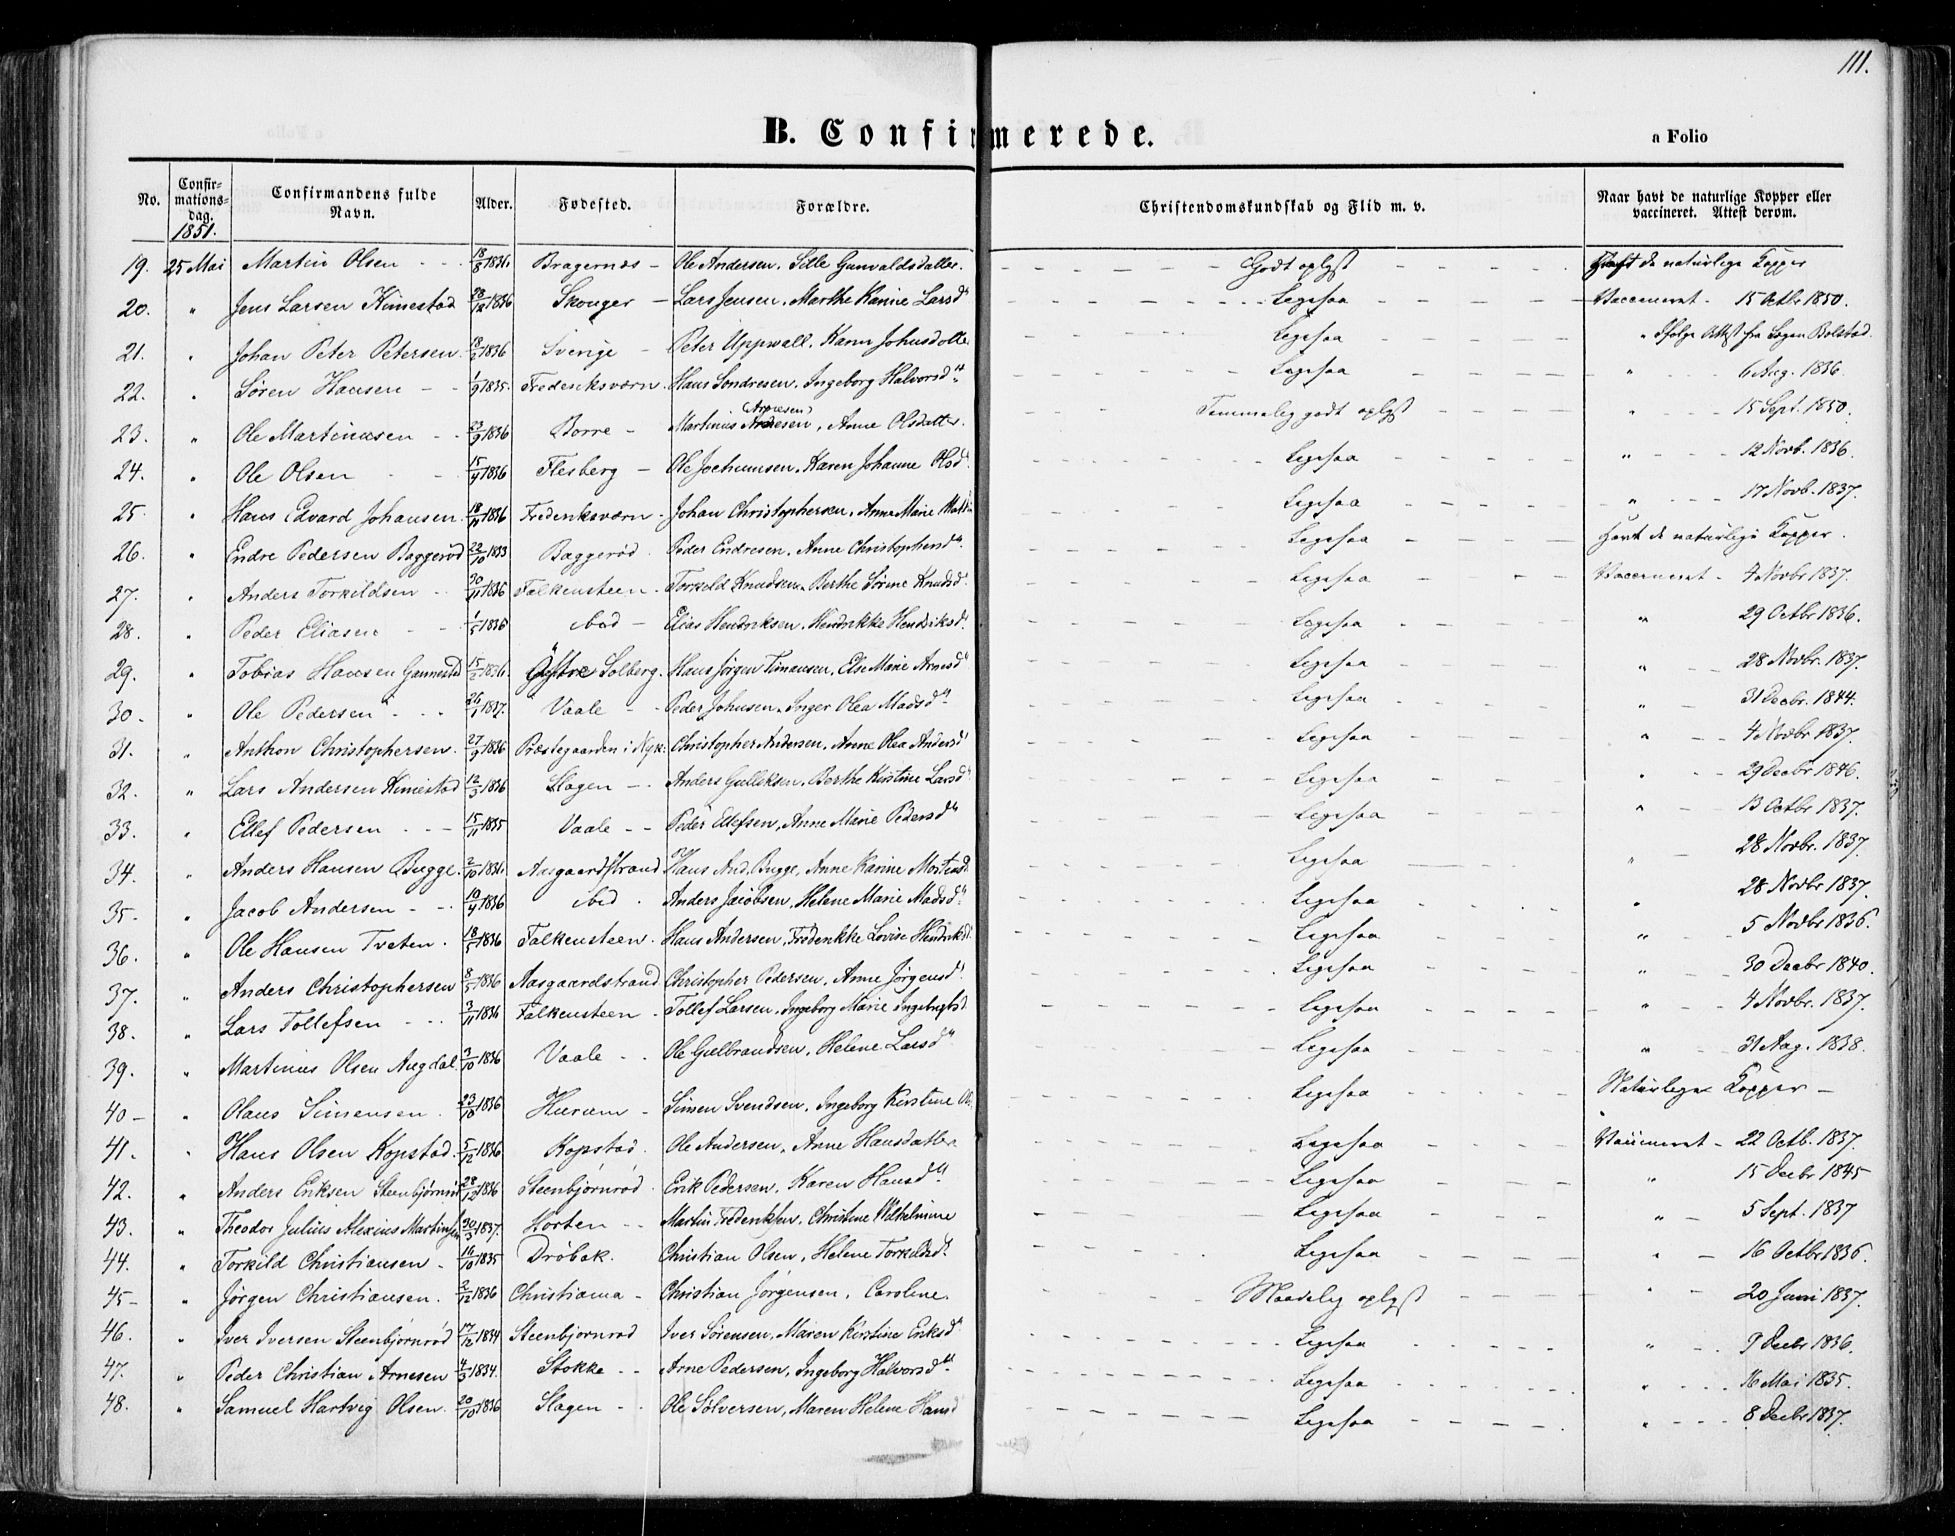 111.
B. Confirmerede.
a Folio
No. Confir-mations-dag. 1851. Confirmandens fulde Navn. Alder. Fødested. Forældre. Christendomskundskab og Flid m. v. Naar havt de naturlige Kopper eller vaccineret. Attest derom.
19. 25 Mai Martin Olsen 18/8 1836. Bragernæs Ole Andersen, Sille Gunvaldsdatter. Godt oplyst Havt de naturlige Kopper
20. " Jens Larsen Kimestad 28/12 1836 Skouger Lars Jensen, Marthe Karine Larsd. Ligesaa Vaccineret 15 Octbr 1850.
21. " Johan Peter Petersen 18/2 1836 Sverige Peter Uppwall, Karin Johnsdotter Ligesaa " Ifølge Attest fra Lægen Bolstad.
22. " Søren Hansen 1/9 1835. Frederiksværn Hans Sondresen, Ingeborg Halvorsd. Ligesaa " 6 Aug. 1836.
23. " Ole Martinusen 23/9 1836 Borre Martinius (Arnesen), Anne Olsdatter. Temmelig godt oplyst " 15 Sept. 1850.
24. " Ole Olsen 15/4 1836 Flesberg Ole Jochumsen, Karen Johanne Olsd. Ligesaa " 12 Novb. 1836.
25. " Hans Edvard Johansen 18/11 1836 Frederiksværn Johan Christophersen, Anne Marie Ligesaa " 17 Novb. 1837.
26. " Endre Pedersen Baggerød 22/10 1833 Baggerød Peder Endresen, Anne Christophersd. Ligesaa Havt de naturlige Kopper.
27. " Anders Torkildsen 20/11 1836 Falkensteen Torkeld Knudsen, Berthe Sørine Knudsd. Ligesaa Vaccineret 7 Novbr 1837.
28. " Peder Eliasen 1/5 1836 ibid Elias Hendriksen, Hendrikke Hendriksd. Ligesaa " 29 Octbr 1836.
29. " Tobias Hansen Gannestad 15/2 1836. Østre Solberg. Hans Jørgen Timansen, Else Marie Arnesd. Ligesaa " 28 Novbr. 1837.
30. " Ole Pedersen 26/1 1837. Vaale Peder Johnsen, Inger Olea Madsd. Ligesaa " 31 Decbr. 1844.
31. " Anthon Christophersen 27/9 1836 Præstegaarden i Nyk. Christopher Andersen, Anne Olea Andersd Ligesaa " 4 Novbr 1837.
32. " Lars Andersen Kimestad 12/3 1836 Slagen Anders Gulliksen, Berthe Kirstine Larsd. Ligesaa " 29 Decbr 1846.
33. " Ellef Pedersen 15/11 1835 Vaale Peder Ellefsen, Anne Marie Pedersd. Ligesaa " 13 Octbr 1837.
34. " Anders Hansen Bugge. 2/10 1836. Aasgaardstrand Hans And. Bugge, Anne Karine Mortensd. Ligesaa " 28 Novbr. 1837.
35. " Jacob Andersen 10/4 1836 ibid. Anders Jacobsen, Helene Marie Madsd. Ligesaa " 28 Novbr 1837.
36. " Ole Hansen Tveten 18/5 1836 Falkensteen. Hans Andersen, Frederikke Lovise Hendriksd. Ligesaa " 5 Novbr 1836.
37. " Anders Christophersen 8/5 1836 Aasgaardstrand Christopher Pedersen, Anne Jørgensd. Ligesaa " 30 Decbr 1840.
38. " Lars Tollefsen 3/11 1836 Falkensteen Tollef Larsen, Ingeborg Marie Ligesaa " 4 Novbr. 1837.
39. " Martinius Olsen Augdal 3/10 1836 Vaale Ole Gulbrandsen, Helene Larsd. Ligesaa " 31 Aug. 1838.
40 " Olaus Simensen 23/10 1836 Hurum Simen Svendsen, Ingeborg Kirstine Ligesaa Naturlige Kopper
41. " Hans Olsen Kopstad. 5/12 1836 Kopstad. Ole Andersen, Anne Hansdatter Ligesaa Vaccineret 22 Octb. 1837.
42. " Anders Eriksen Steenbjørnrød 28/12 1836 Steenbjørnrød Erik Pedersen, Karen Hansd. Ligesaa " 15 Decbr 1845
43. " Theodor Julius Alexius Martinsen 30/3 1837. Horten Martin Frederiksen, Christine Wilhelmine Ligesaa " 5 Sept. 1837
44. " Torkild Christiansen 16/10 1835 Drøbak. Christian Olsen, Helene Torkildsd. Ligesaa " 16 Octbr 1836.
45 " Jørgen Christiansen. 2/12 1836 Christiania Christian Jørgensen, Caroline. Maadelig oplyst " 20 Juni 1837.
46. " Iver Iversen Steenbjørnrød 17/12 1834 Steenbjørnrød Iver Sørensen, Maren Kirstine Eriksd. Ligesaa " 9 Decbr 1836.
47. " Peder Christian Arnesen 4/3 1834. Stokke Arne Pedersen, Ingeborg Halvorsd. Ligesaa " 16 Mai 1835.
48. " Samuel Hartvig Olsen. 20/10 1836 Slagen Ole Sølversen, Maren Helene Hansd Ligesaa " 8 Decbr 1837.